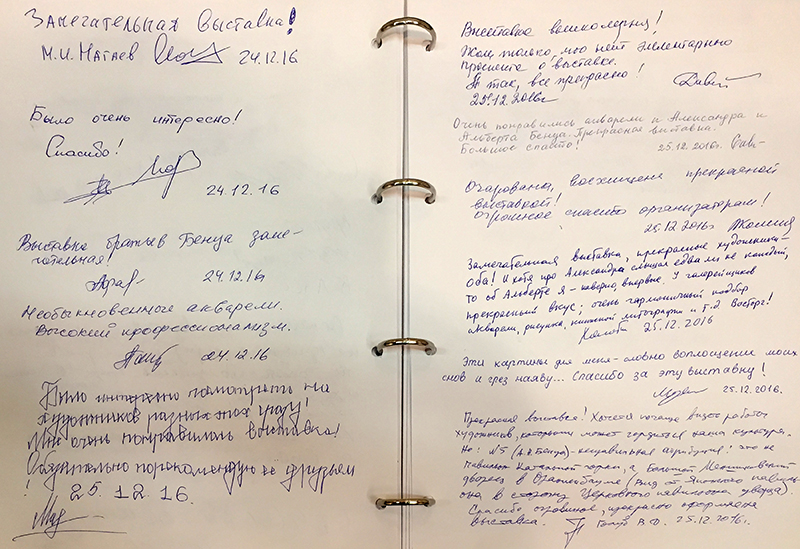 Замечательная выставка!
М.И. Матаев 24.12.16
Было очень интересно!
Спасибо!
24.12.16
Выставка братьев Бенуа заме-
чательная!
24.12.16
Необыкновенные акварели.
Высокий профессионализм.
24.12.16
Было интересно посмотреть на
художников разных эпох сразу!
Мне очень понравилась выставка!
Обязательно порекомендую её друзьям
!
25.12.16.
Выставка великолепна!
Жаль только, что нет элементарного
проспекта о выставке.
А так, все прекрасно!
25.12.2016г.
Очень понравились акварели и Александра и
Альберта Бенуа. Прекрасная выставка.
Большое спасибо! 25.12.2016г.
Очарована, восхищена прекрасной
выставкой!
Огромное спасибо организаторам!
25.12.2016г
Замечательная выставка, прекрасные художники-
оба! И хотя про Александра слышал едва ли не каждый,
то об Альберте я - наверно, впервые. У галерейщиков
прекрасный вкус; очень гармоничный подбор
акварели, рисунка, книжной литографии и т.д. Восторг!
25.12.2016
Эти картины для меня - словно воплощении моих
снов и грез наяву... Спасибо за эту выставку!
25.12.2016.
Прекрасная выставка! Хочется почаще видеть работы
художников, которыми может гордиться наша культура.
Но: №5 (А.Н.Бенуа) - неправильная атрибуция: это не
павильон Катальной горки, а Большой Меншиковский
дворец в Ораниенбауме (вид от Японского павильона
она в сторону Церковного павильона дворца).
Спасибо огромное, прекрасно оформлена
выставка. В.Ф. 25.12.2016г.